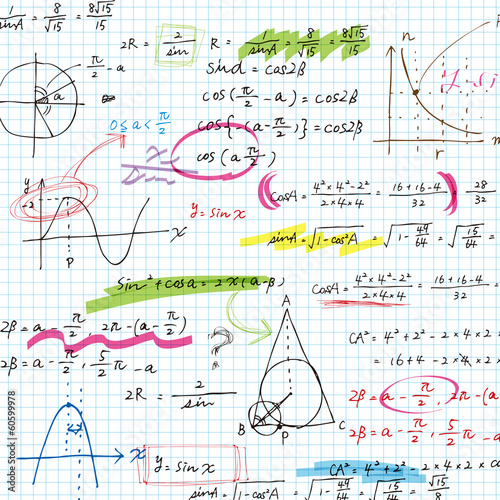 1/sinA = 8/√15 = 8√15/15
2R = 2/sin
R = 1/sinA = 8/√15 = 8√15/15
sind = cos2β
π/2 - a
a
cos(π/2 - a) = cos2β
0 ≤ a < π/2
cos{-(a - π/2)} = cos2β
cos(a π/2)
n
r
m
y
P
x
y = sin x
cosA = 4²×4²-2²/2×4×4 = 16+16-4/32 = 28/32
sinA = √1-cos²A = √1-49/64 = √15/64 =
sin² + cosa = 2×(a-β)
cosA = 4²×4²-2²/2×4×4 = 16+16-4/32
2β = a - π/2, 2π-(a-π/2)
CA² = 4² + 2² - 2×4×2×
= 16 + 4 - 2×4×2×
2β = a - π/2, 5/2 π - a
2R = 2/sin
?
A
B
P
C
2β = a - π/2, 2π-(a
2β = a - π/2, 5/2 π - a
x
y = sin x
CA² = 4² + 2² - 2×4×2×co
sinA = √1-cos²A = √1-49/64 = √15/64 = √15/8
Adobe Stock | #60599978